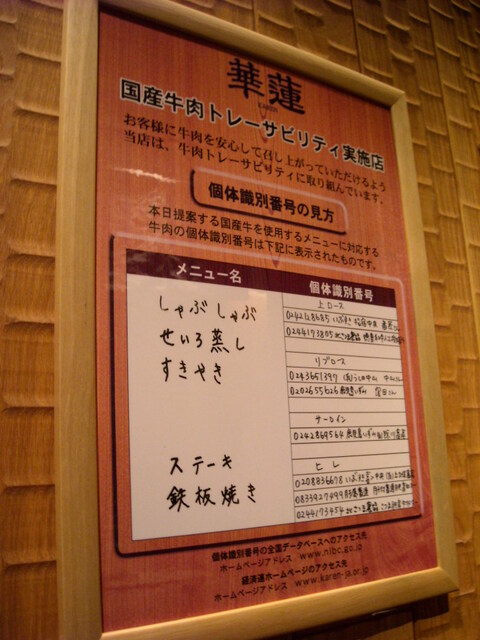 華蓮
KAREN
国産牛肉トレーサビリティ実施店
お客様に牛肉を安心して召し上がっていただけるよう
当店は、牛肉トレーサビリティに取り組んでいます。
個体識別番号の見方
本日提案する国産牛を使用するメニューに対応する
牛肉の個体識別番号は下記に表示されたものです。
メニュー名
個体識別番号
しゃぶしゃぶ
せいろ蒸し
すきやき
ステーキ
鉄板焼き
上ロース
0242128685
0244173805
リブロース
0243651397
0202655626
サーロイン
0242869564
ヒレ
0208836678
0833927499
0244173454
個体識別番号の全国データベースへのアクセス先
ホームページアドレス www.nlbc.go.jp
経済連ホームページのアクセス先
ホームページアドレス www.karen-ja.or.jp